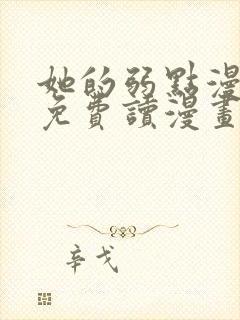 她的弱點漫
免費讀漫畫
辛戈